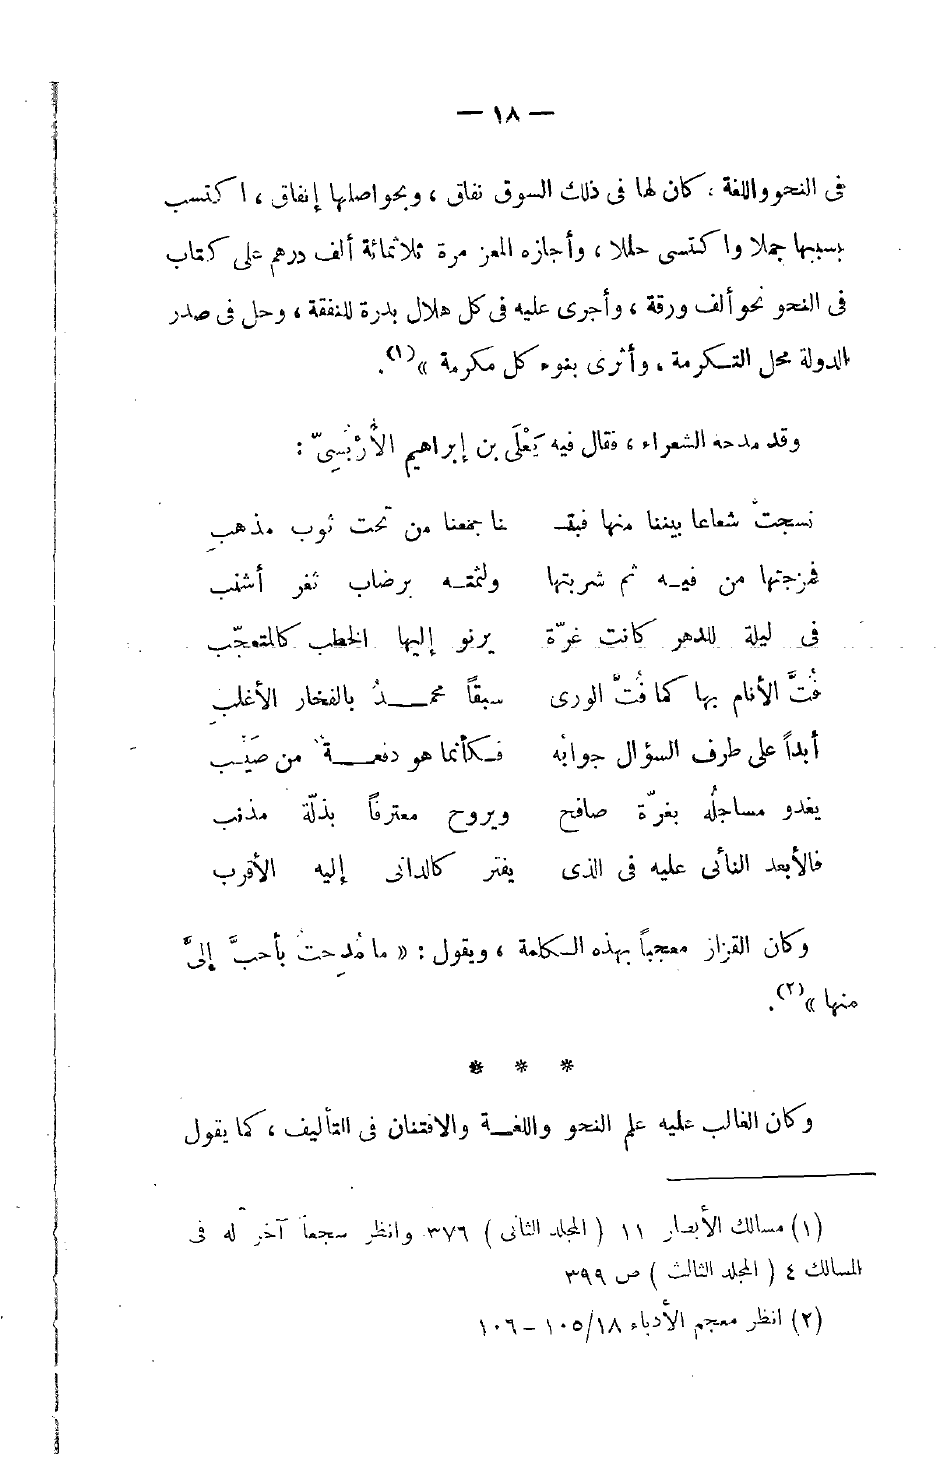 — ١٨ —
فى النحو واللغة ، كان لها فى ذلك السوق نفاق ، وبحواصلها إنفاق ، اكتسب
بسببها جملا واكتسى حللا ، وأجازه المعز مرة ثلاثمائة ألف درهم على كتاب
فى النحو نحو ألف ورقة ، وأجرى عليه فى كل هلال بدرة للنفقة ، وحل فى صدر
الدولة محل التكرمة ، وأثرى بنوء كل مكرمة » (١).
وقد مدحه الشعراء ، فقال فيه يَعْلَى بن إبراهيم الأُرْبُسِىّ :
نسجتْ شعاعا بيننا منها فبقـ نا جمعنا من تحت ثوب مذهبِ
فمزجتها من فيـه ثم شربتها ولثمتـه برضاب ثغر أشنب
فى ليلة للدهر كانت غرّة يرنو إليها الخطب كالمتعجّب
فُتَّ الأنام بها كما فُتَّ الورى سبقًا محمـدُ بالفخار الأغلبِ
أبداً على طرف السؤال جوابُه فـكأنما هو دفعـة من صَيّب
يغدو مساجلُه بغرّة صافح ويروح معترفاً بذلّة مذنب
فالأبعد النأى عليه فى الذى يفتر كالدانى إليه الأقرب
وكان القزاز معجباً بهذه الكلمة ، ويقول : « ما مُدِحتُ بأحبَّ إلىَّ
منها » (٢).
* * *
وكان الغالب عليه علم النحو واللغـة والافتنان فى التأليف ، كما يقول
(١) مسالك الأبصار ١١ ( المجلد الثانى ) ٣٧٦ وانظر سجعاً آخر له فى
المسالك ٤ ( المجلد الثالث ) ص ٣٩٩
(٢) انظر معجم الأدباء ١٠٥/١٨ – ١٠٦